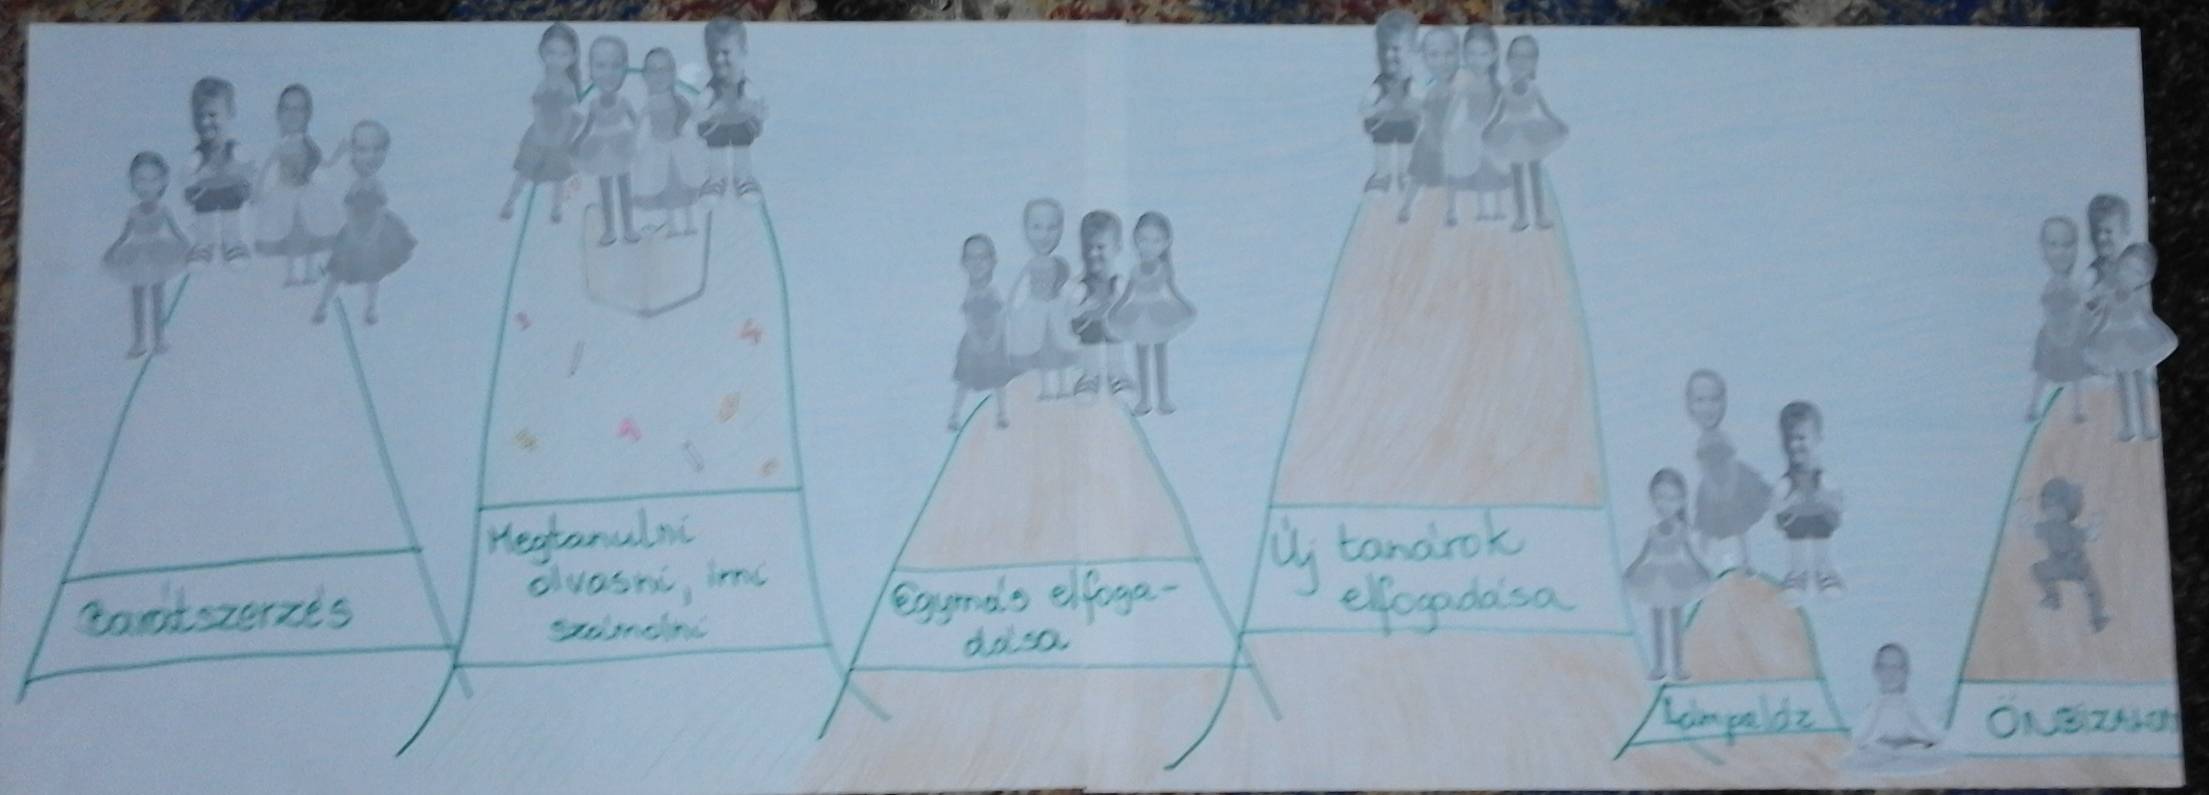 Barátszerzés
Megtanulni
olvasni, írni
számolni
Egymás elfoga-
dása
Új tanárok
elfogadása
Lámpaláz
ÖNBIZALOM